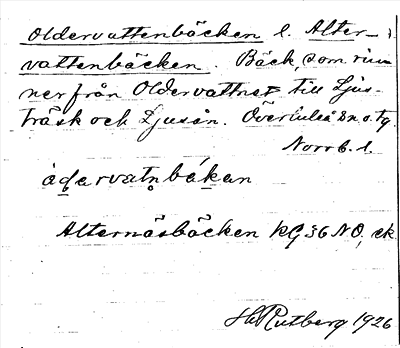 Oldervattenbäcken l. Alter-
vattenbäcken. Bäck, som rin-
ner från Oldervattnet till Ljus-
träsk och Ljusån. Överluleå sn. o. tg.
Norrb. l.
ådərvatnbäkən
Alternäsbäcken KG 36 NO, ek
H. Rutberg 1926